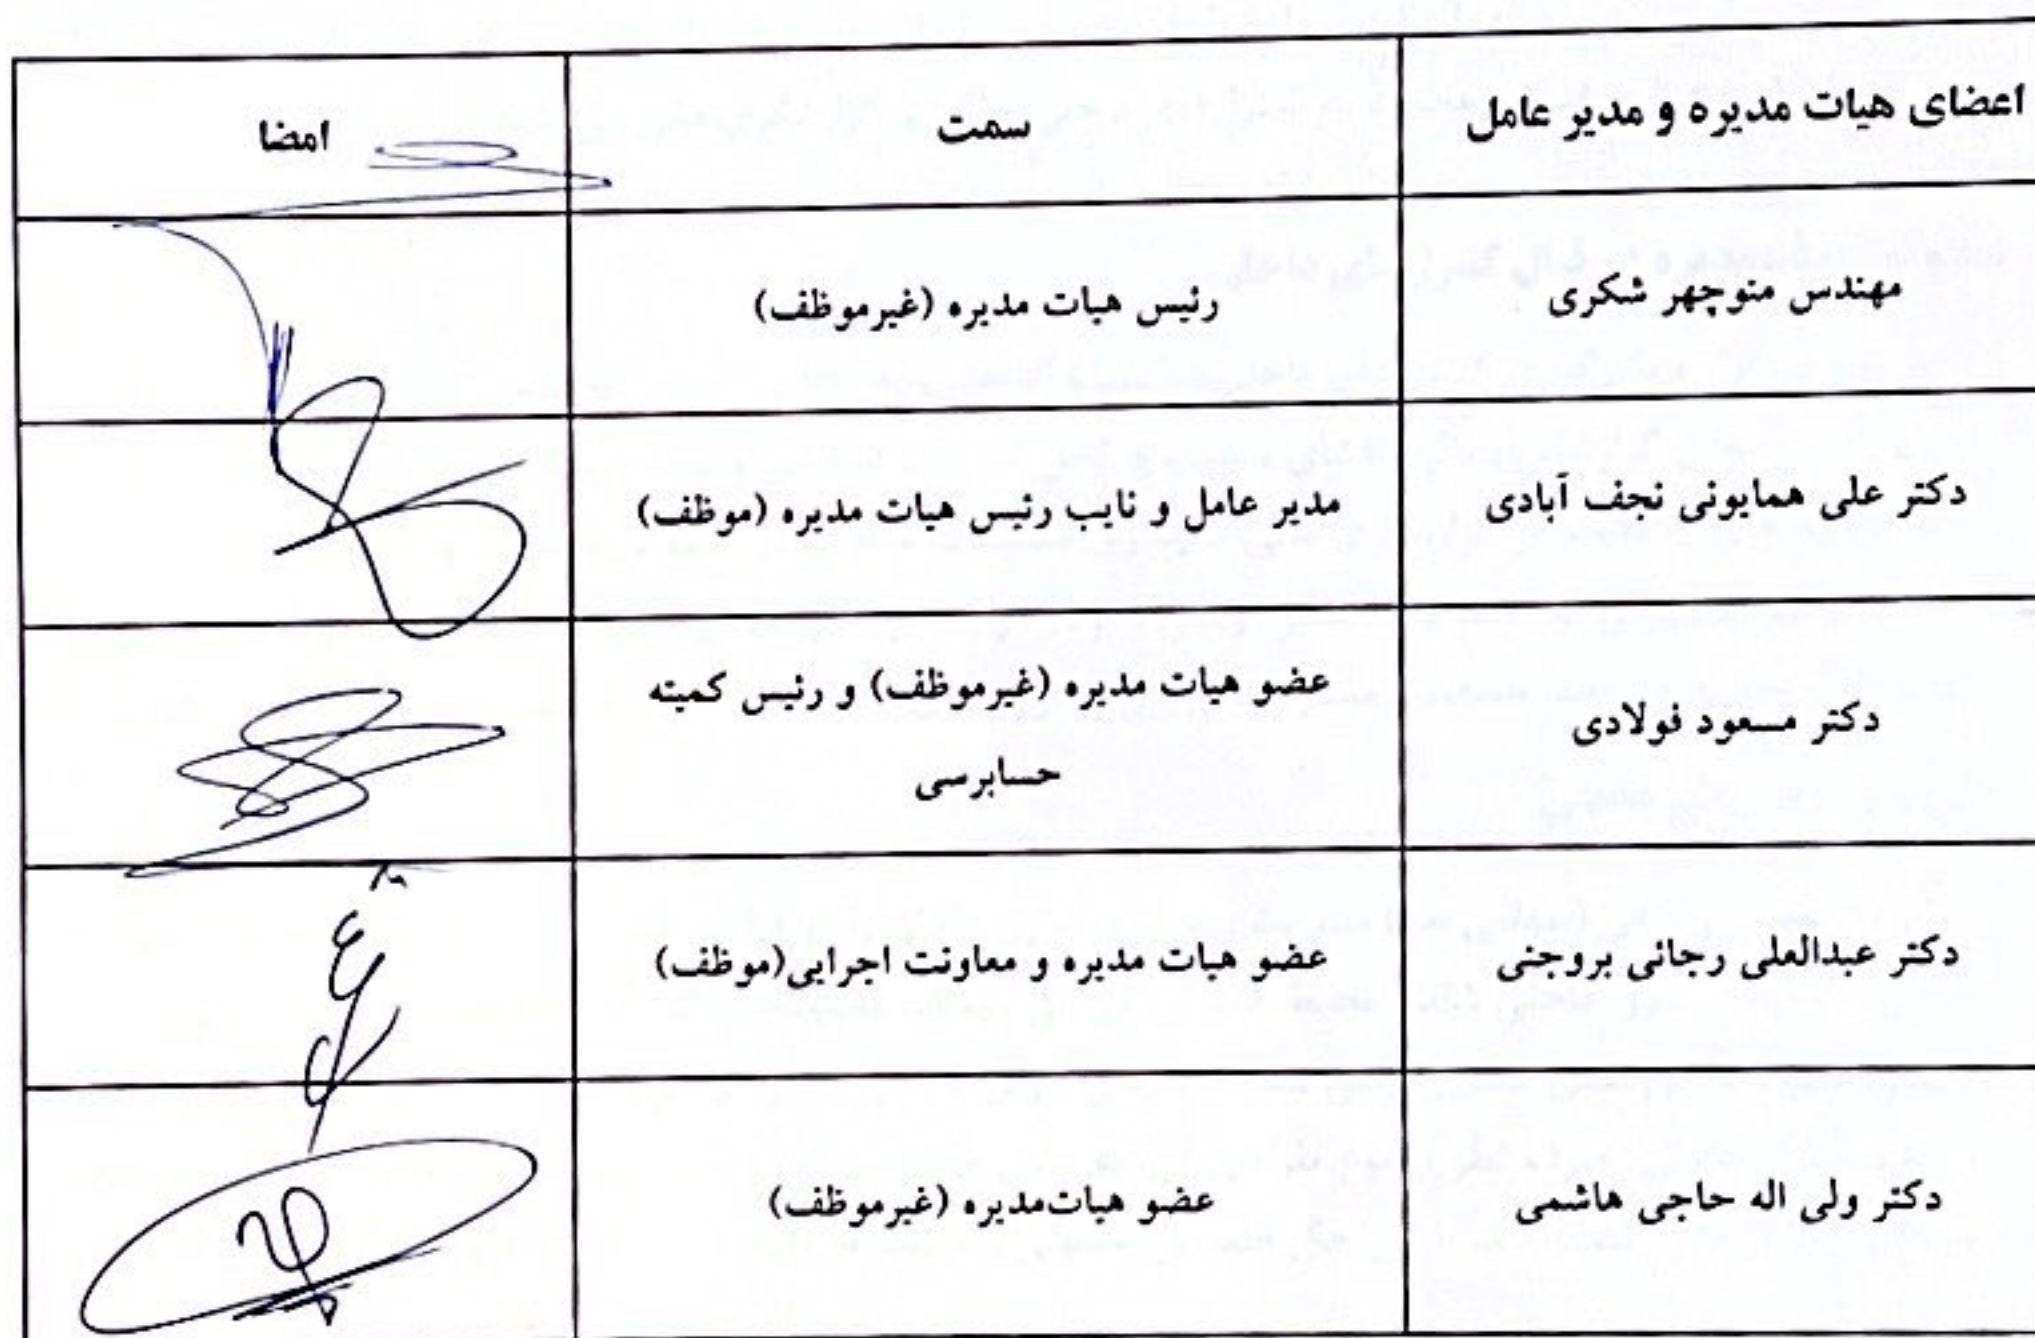 اعضای هیات مدیره و مدیر عامل سمت امضا
مهندس منوچهر شکری رئیس هیات مدیره (غیرموظف)
دکتر علی همایونی نجف آبادی مدیر عامل و نایب رئیس هیات مدیره (موظف)
دکتر مسعود فولادی عضو هیات مدیره (غیرموظف) و رئیس کمیته
حسابرسی
دکتر عبدالعلی رجائی بروجنی عضو هیات مدیره و معاونت اجرایی(موظف)
دکتر ولی اله حاجی هاشمی عضو هیات‌مدیره (غیرموظف)